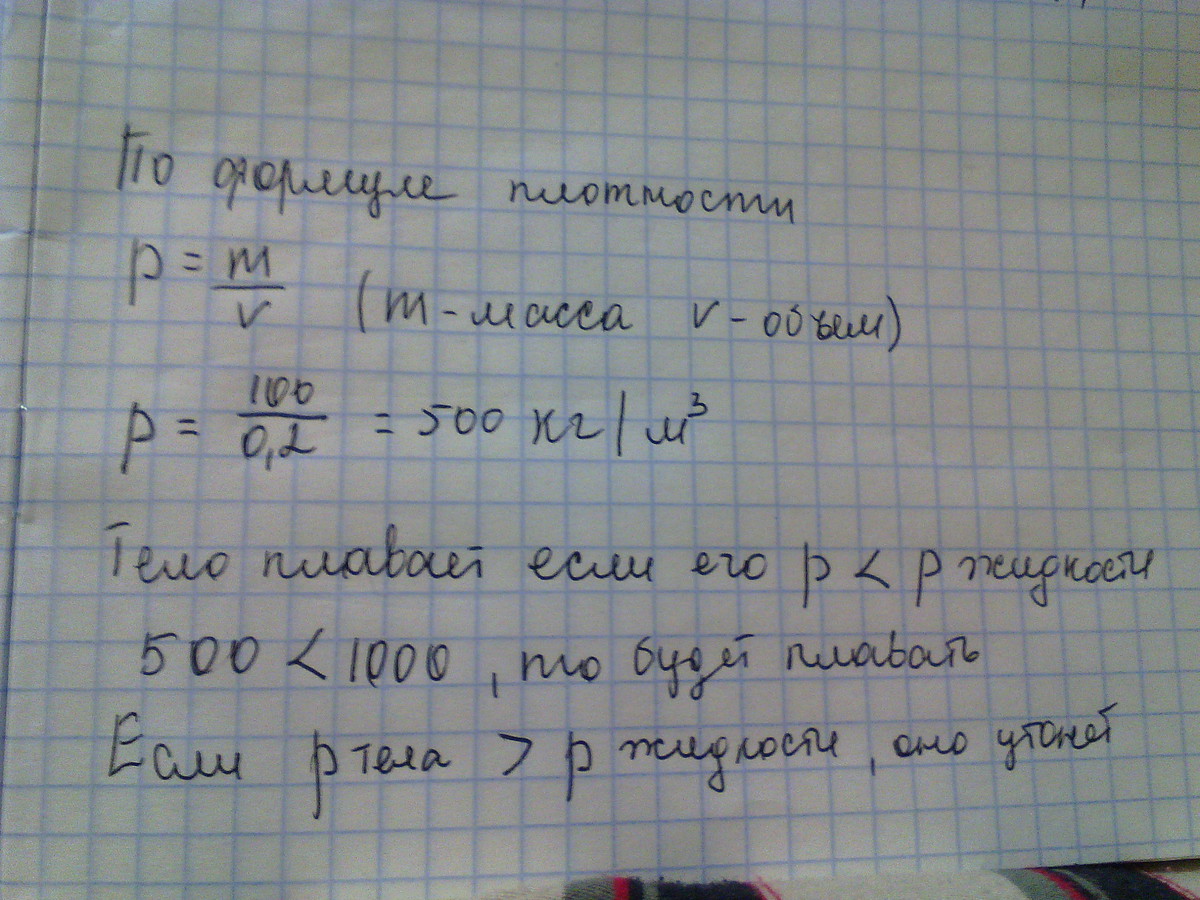 По формуле плотности
p = m/v (m - масса v - объем)
p = 100/0,2 = 500 кг/м³
Тело плавает если его p < p жидкости
500 < 1000, то будет плавать
Если p тела > p жидкости, оно утонет